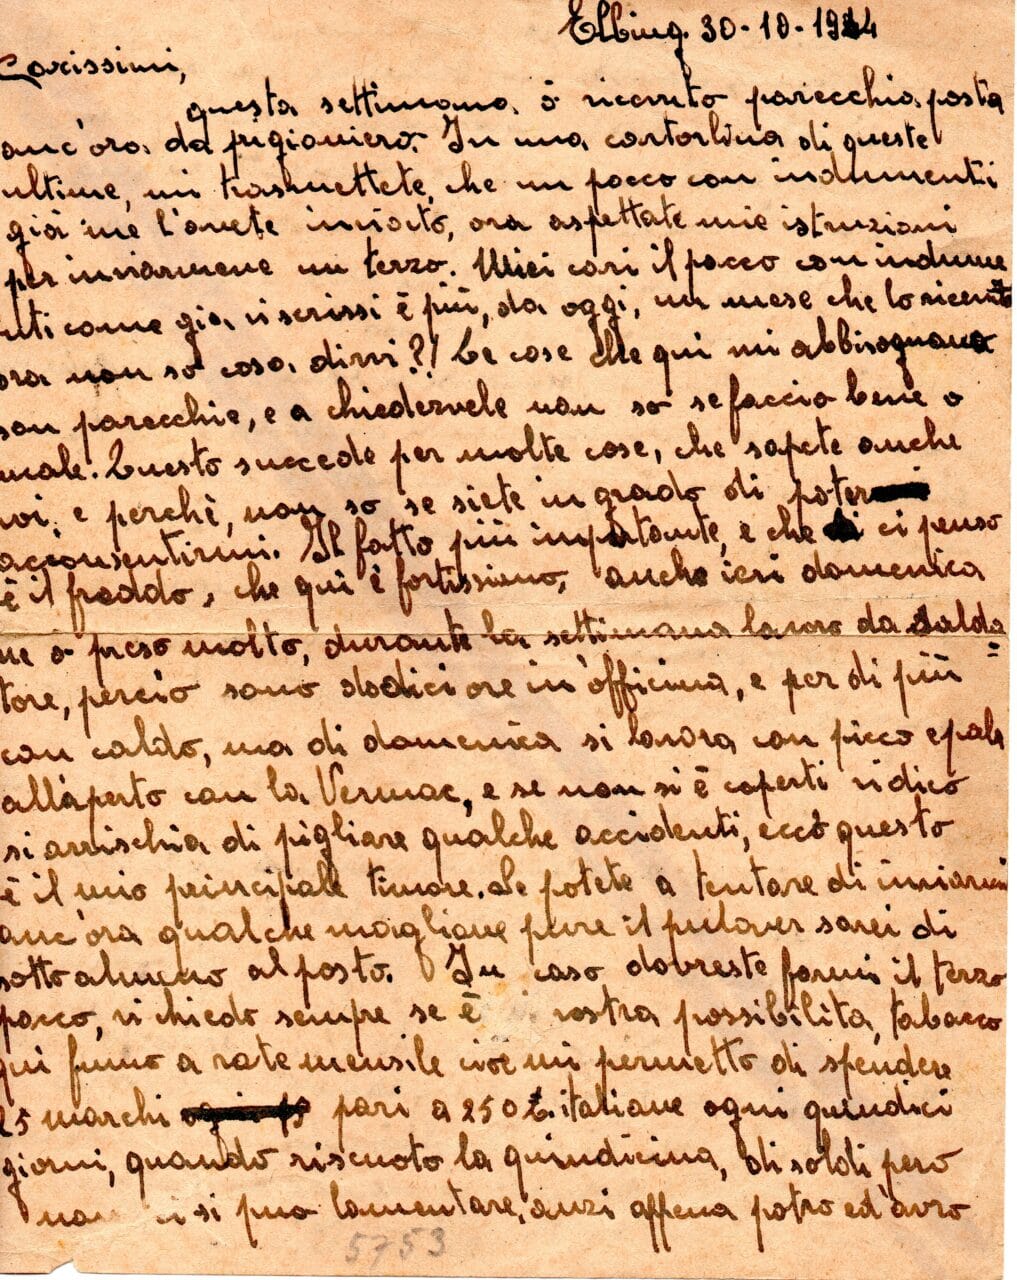 Elbing 30-10-1944
Carissimi,
questa settimana ò ricevuto parecchia posta
anc'ora da prigioniero. In una cartorlina di queste
ultime, mi trasmettete, che un pacco con indumenti
già me l'avete inviato, ora aspettate mie istruzioni
per inviarmene un terzo. Miei cari il pacco con indume
nti come già vi scrissi è più, da oggi, un mese che lo ricevuto
ora non so cosa dirvi?! Le cose che qui mi abbisognano
son parecchie, e a chiedervele non so se faccio bene o
male. Questo succede per molte cose, che sapete anche
voi, e perchè, non so se siete in grado di poter
acconsentirmi. Il fatto più importante, e che ci penso
è il freddo, che qui è fortissimo, anche ieri domenica
ne ò preso molto, durante la settimana lavoro da salda=
tore, perciò sono dodici ore in officina, e per di più
con caldo, ma di domenica si lavora con picco e pala
all'aperto con la Vermac, e se non si è coperti vi dico
si arrischia di pigliare qualche accidenti, ecco questo
è il mio principale timore. Se potete a tentare di inviarmi
anc'ora qualche maglione pure il pulover sarei di
sotto almeno al posto. In caso dovreste farmi il terzo
pacco, vi chiedo sempre se è vostra possibilità, tabacco
qui fumo a rate mensile cioè mi permetto di spendere
25 marchi pari a 250 £. italiane ogni quindici
giorni, quando riscuoto la quindicina, di soldi però
non ci si puo lamentare, anzi appena potrò ed avrò
5753